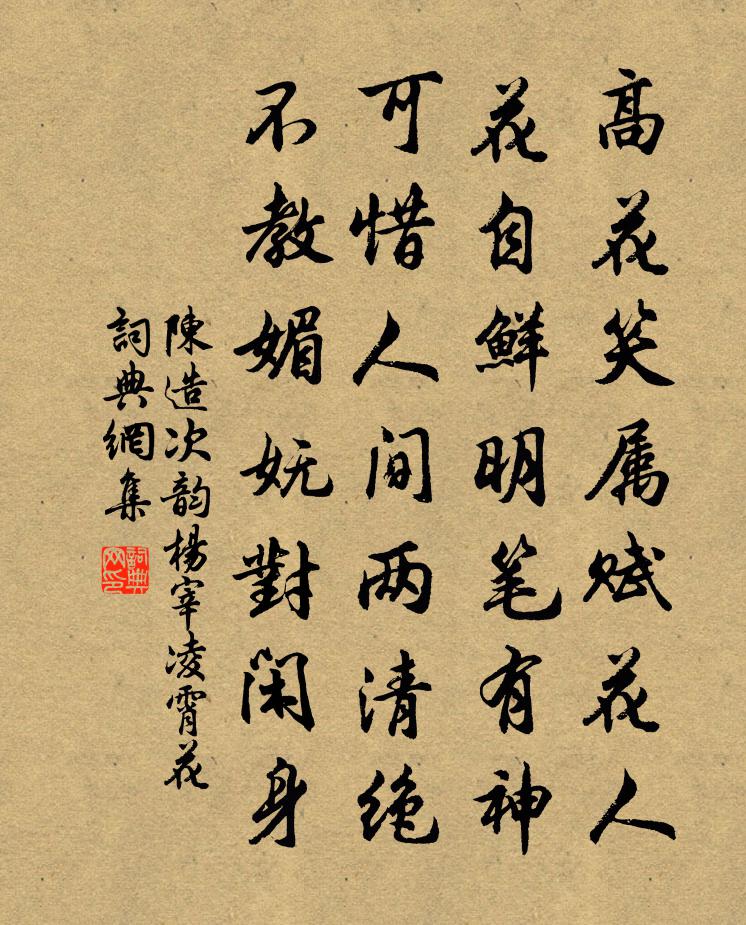 高花笑属赋花人
花自鲜明笔有神
可惜人间两清绝
不教媚妩對闲身
陳造次韵楊宰凌霄花
詞典網集
詞典网印